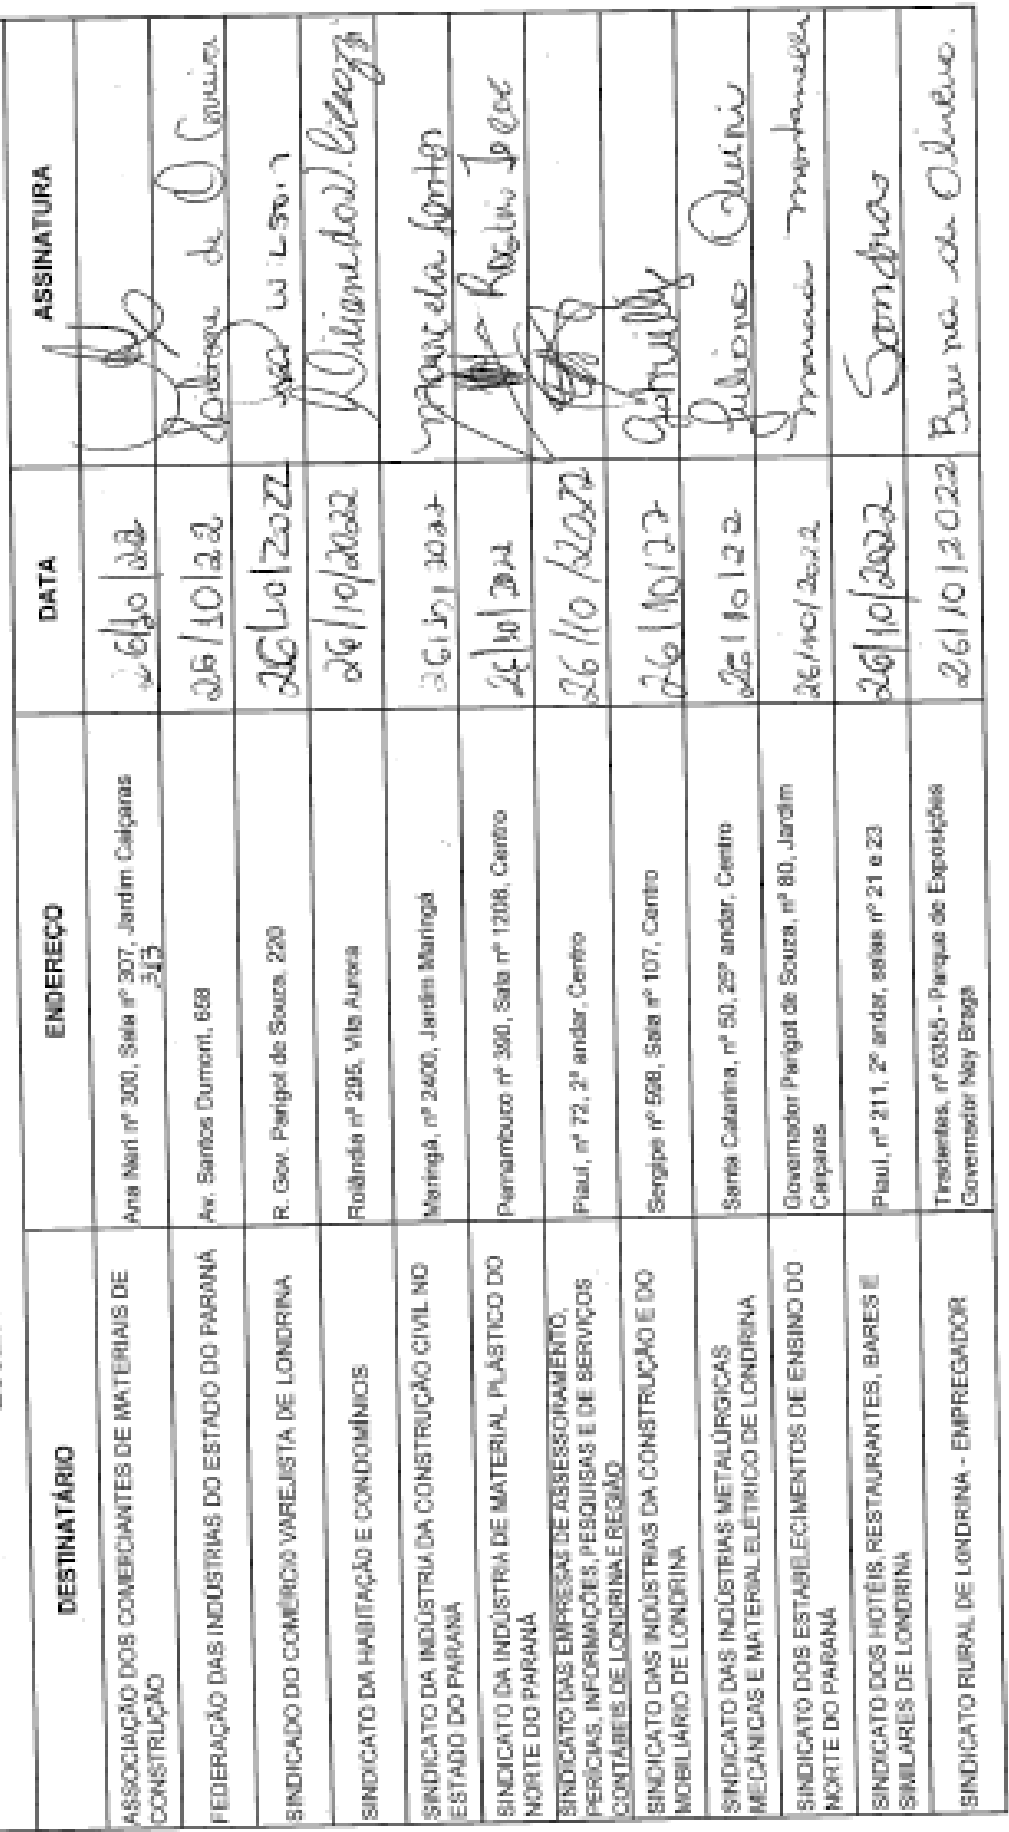 DESTINATÁRIO ENDEREÇO DATA ASSINATURA
ASSOCIAÇÃO DOS COMERCIANTES DE MATERIAIS DE
CONSTRUÇÃO
Ana Neri nº 300, Sala nº 307, Jardim Caiçaras
313
26/10/22
FEDERAÇÃO DAS INDÚSTRIAS DO ESTADO DO PARANÁ
Av. Santos Dumont, 658
26/10/22
de
SINDICADO DO COMÉRCIO VAREJISTA DE LONDRINA
R. Gov. Parigot de Souza, 220
26/10/2022
WILSON
SINDICATO DA HABITAÇÃO E CONDOMÍNIOS
Rolândia nº 295, Vila Aurora
26/10/2022
SINDICATO DA INDÚSTRIA DA CONSTRUÇÃO CIVIL NO
ESTADO DO PARANÁ
Maringá, nº 2400, Jardim Maringá
26/10/2022
Marcela
SINDICATO DA INDÚSTRIA DE MATERIAL PLÁSTICO DO
NORTE DO PARANÁ
Pernambuco nº 390, Sala nº 1206, Centro
26/10/2022
SINDICATO DAS EMPRESAS DE ASSESSORAMENTO,
PERÍCIAS, INFORMAÇÕES, PESQUISAS E DE SERVIÇOS
CONTÁBEIS DE LONDRINA E REGIÃO
Piauí, nº 72, 2º andar, Centro
26/10/2022
SINDICATO DAS INDÚSTRIAS DA CONSTRUÇÃO E DO
MOBILIÁRIO DE LONDRINA
Sergipe nº 598, Sala nº 107, Centro
26/10/22
SINDICATO DAS INDÚSTRIAS METALÚRGICAS
MECÂNICAS E MATERIAL ELÉTRICO DE LONDRINA
Santa Catarina, nº 50, 25º andar, Centro
26/10/22
Juliano
SINDICATO DOS ESTABELECIMENTOS DE ENSINO DO
NORTE DO PARANÁ
Governador Parigot de Souza, nº 80, Jardim
Caiçaras
26/10/2022
SINDICATO DOS HOTÉIS, RESTAURANTES, BARES E
SIMILARES DE LONDRINA
Piauí, nº 211, 2º andar, salas nº 21 e 23
26/10/2022
Sandra
SINDICATO RURAL DE LONDRINA - EMPREGADOR
Tiradentes, nº 6355 - Parque de Exposições
Governador Ney Braga
26/10/2022
Bruna de Oliveira.